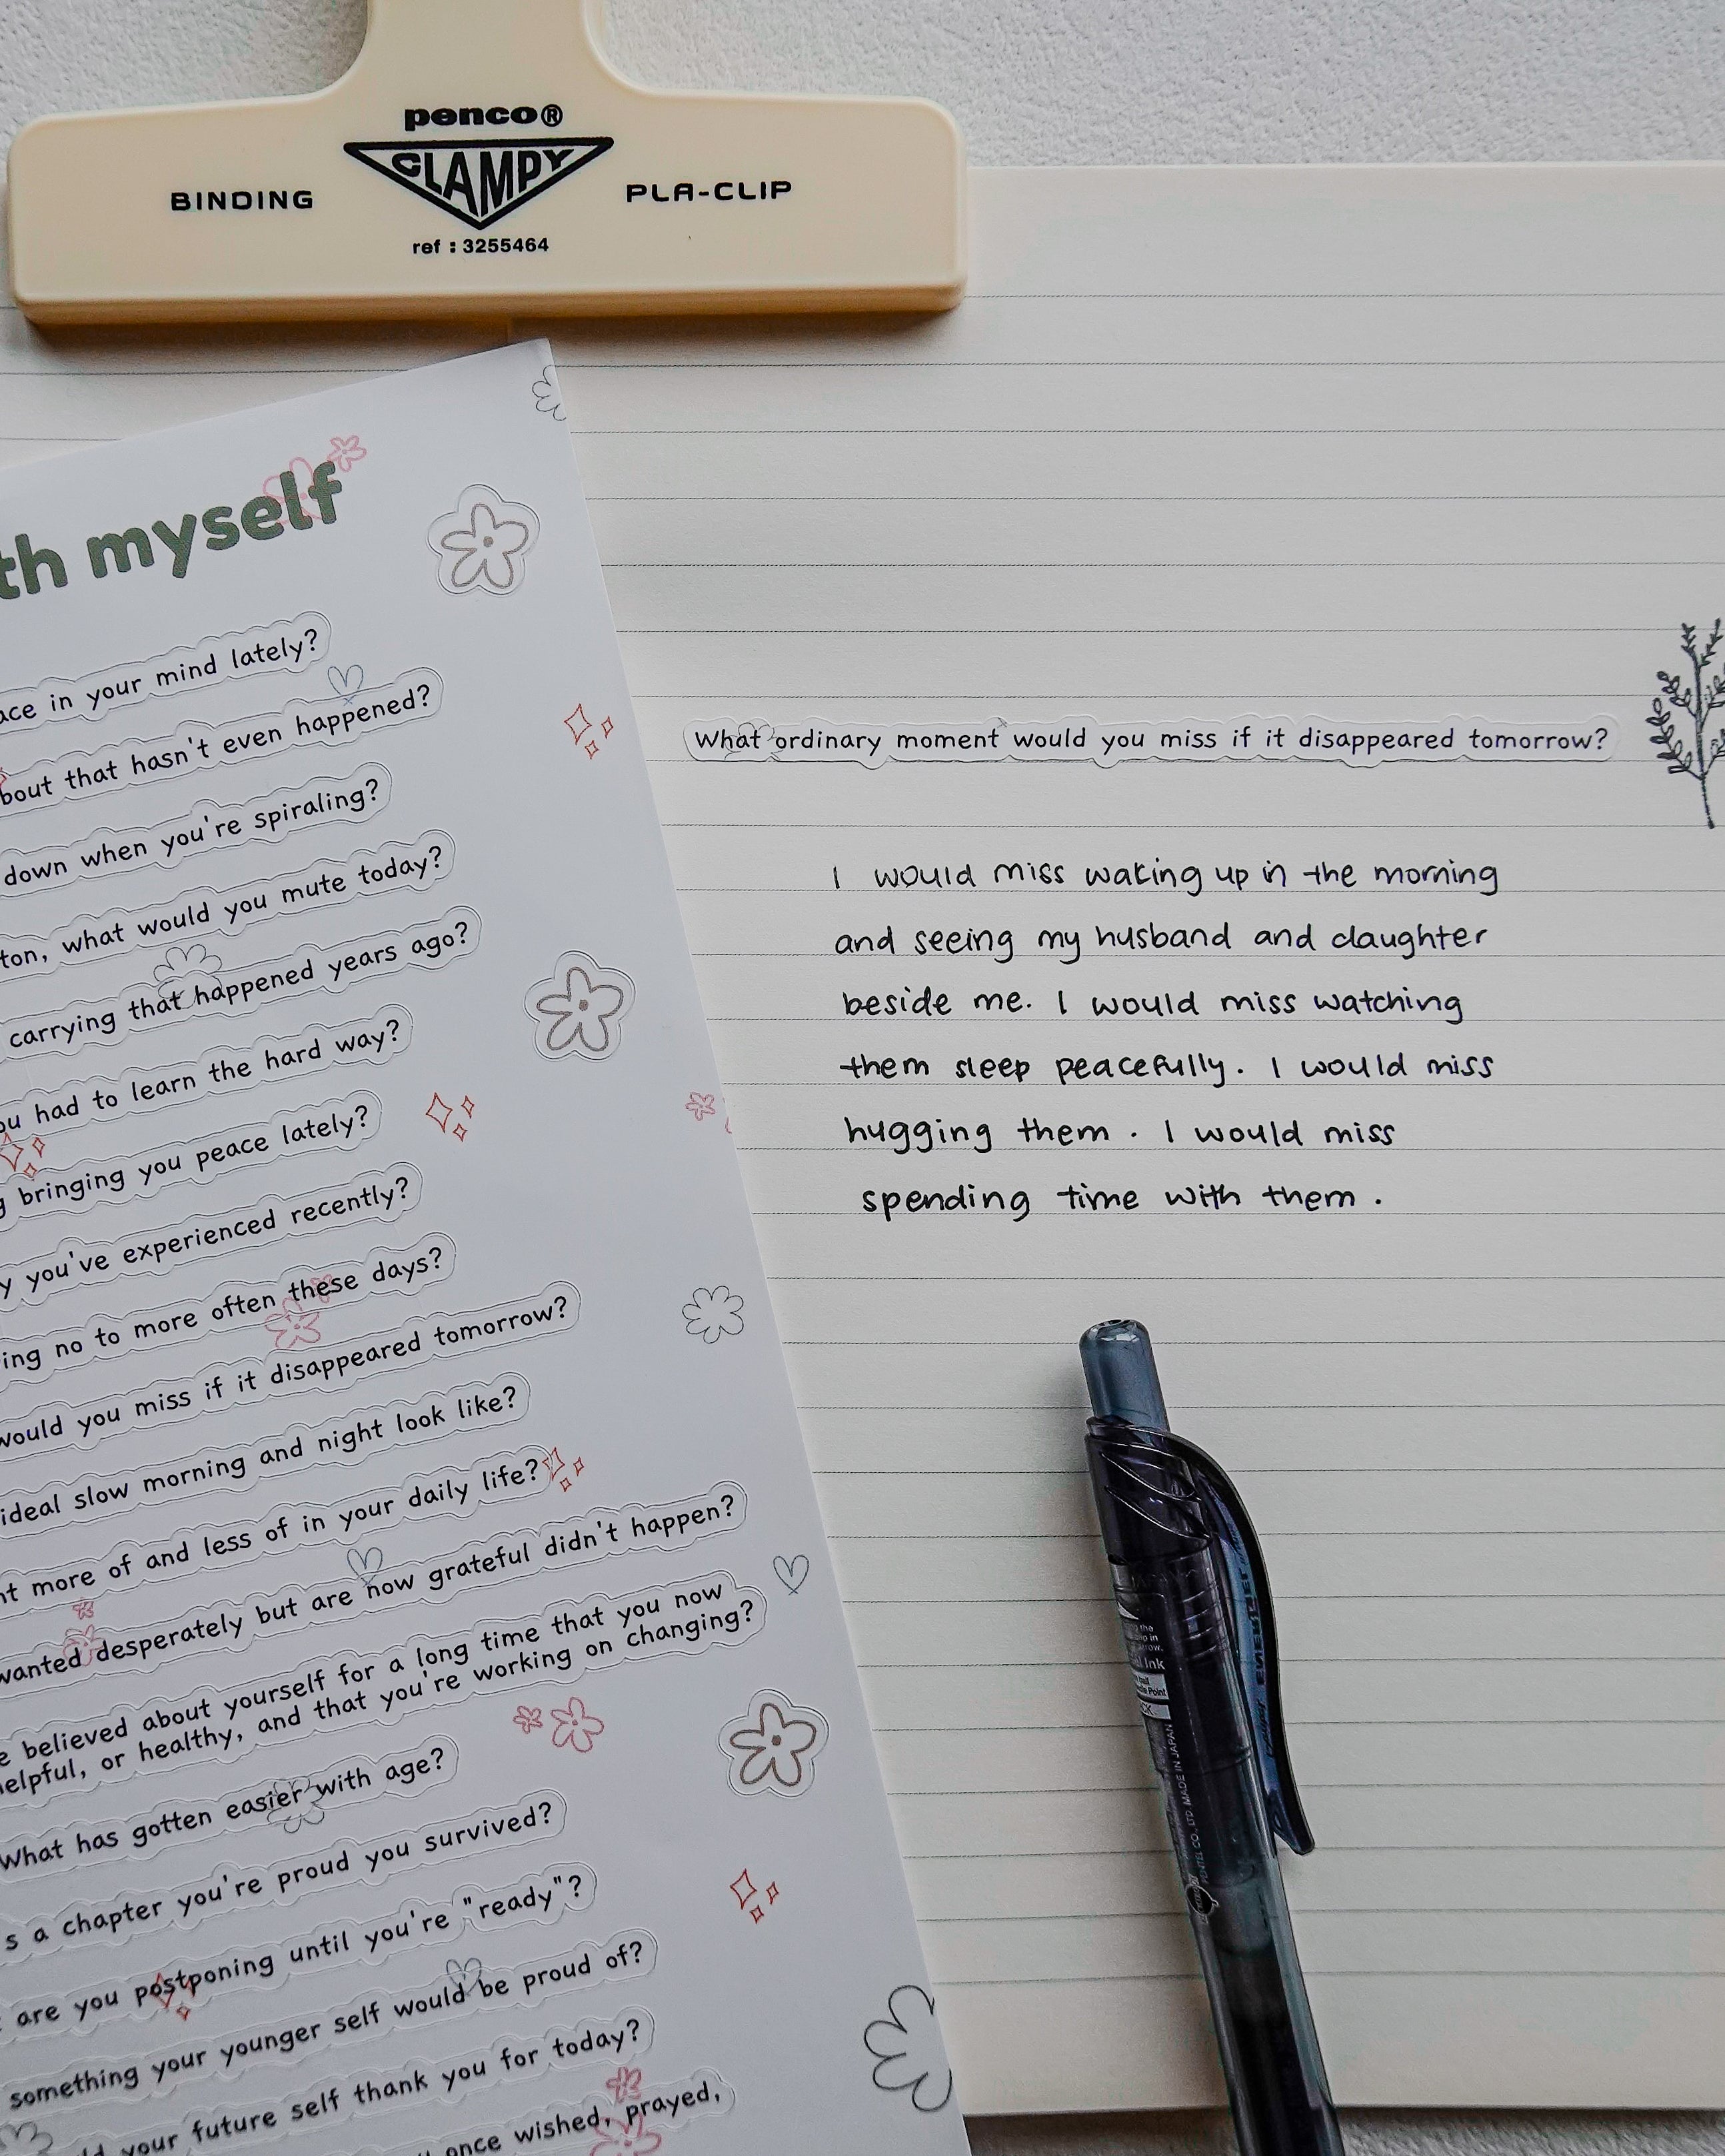 penco®
CLAMPY
BINDING
PLA-CLIP
ref : 3255464
th myself
ace in your mind lately?
bout that hasn't even happened?
down when you're spiraling?
ton, what would you mute today?
carrying that happened years ago?
ou had to learn the hard way?
g bringing you peace lately?
y you've experienced recently?
ing no to more often these days?
would you miss if it disappeared tomorrow?
ideal slow morning and night look like?
nt more of and less of in your daily life?
wanted desperately but are now grateful didn't happen?
e believed about yourself for a long time that you now
helpful, or healthy, and that you're working on changing?
What has gotten easier with age?
s a chapter you're proud you survived?
are you postponing until you're "ready"?
something your younger self would be proud of?
ld your future self thank you for today?
once wished, prayed,
What ordinary moment would you miss if it disappeared tomorrow?
I would miss waking up in the morning
and seeing my husband and daughter
beside me. I would miss watching
them sleep peacefully. I would miss
hugging them. I would miss
spending time with them.
Ink
Point
PENTEL CO., LTD. MADE IN JAPAN